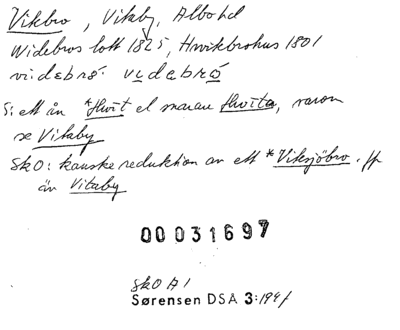 Vikbro, Vitaby, Albo hd
Widebros lott 1825, Hwikbrohus 1801
vi:debrå. videbrå
S: ett ån *Hvit el snarare Hvita, varom
se Vitaby
SkO: kanske reduktion av ett *Viksjöbro. Jfr
än Vitaby
00031697
SkO A1
Sørensen DSA 3:194f